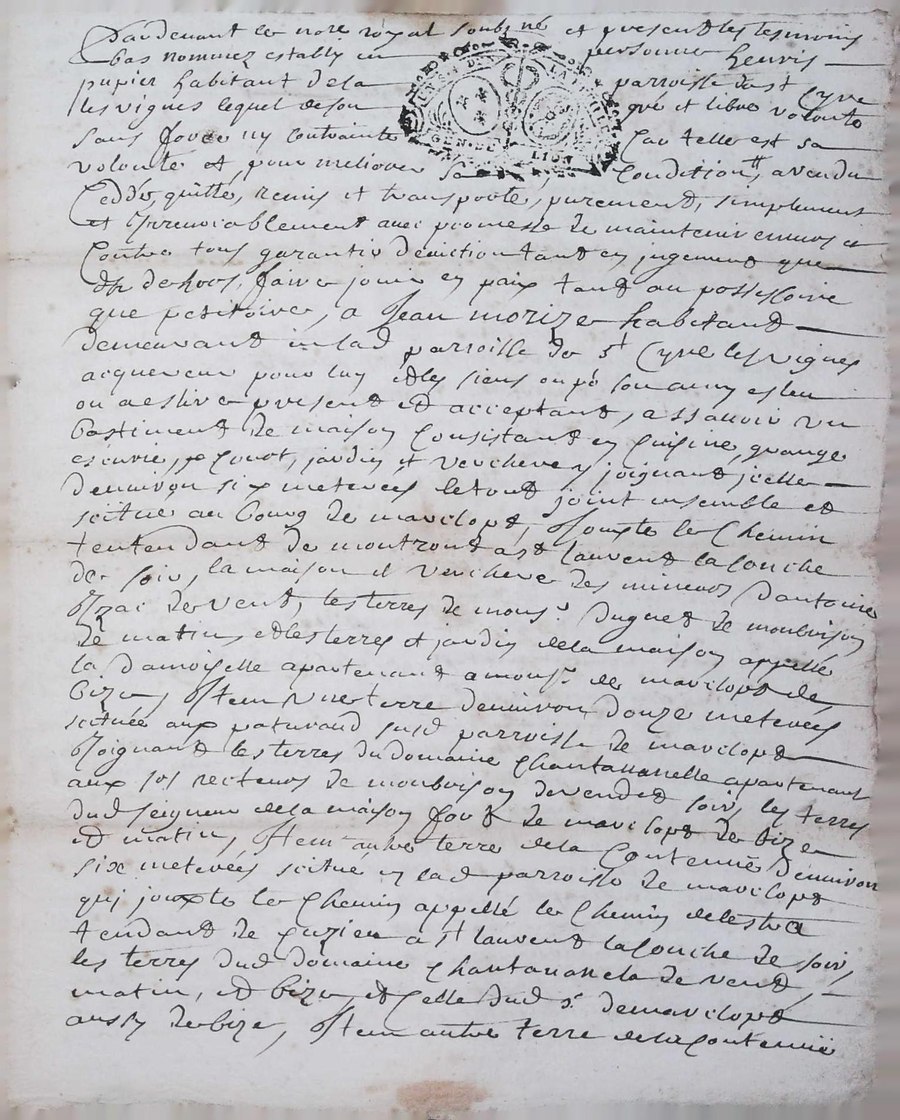 Pardevant le no.re royal soubz.né et presents les tesmoins
bas nommez estably en personne henris
papier habitant de la parroisse de st Cyre
les vignes lequel de son gré et libre volonté
sans force ny contrainte Car telle est sa
volonté et pour meliorer sa Condition, a vendu
Ceddé, quitté, remis et transporté, purement, simplement
et Irrevocablement avec promesse de maintenir envers et
Contre tous garantir d'eviction tant en jugement que
de hors, faire jouir en paix tant au possessoire
que petitoire, a Jean morize habitant
demeurant en lad parroisse de st Cyre les vignes
acquereur pour luy et les siens ou po son amy esleu
ou a eslire present et acceptant, a ssavoir un
bastiment de maison Consistant en Cuisine, grange
escurie, jardin et verchere y joignant icelle
d'environ six meterees le tout joint ensemble et
scitué au bourg de mavilops, Jouxte le Chemin
tendant de montrond a st Laurent la Conche
de soir, la maison et verchere des mineurs d'antoine
de vent, les terres de mons.r Duguet de monbrison
de matin et les terres et jardin de la maison appellé
la Damoiselle apartenant a mons.r de mavilops de
bize, Item une terre d'environ douze meterees
scituée aux paturaud susd parroisse de mavilops
Joignant les terres du domaine Chantananelle apartenant
aux rs recteurs de monbrison de vend et soir, les terres
dud seigneur de la maison fort de mavilops de bize
et matin, Item autre terre de la Contenue d'environ
six meterees scitué en lad parroisse de mavilops
qui jouxte le Chemin appellé le Chemin de lestra
tendant de Cuzieu a st Laurent la Conche de soir,
les terres dud domaine Chantananela de vend,
matin, et bize, et Celle dud sr de mavilops
aussy de bize, Item autre terre de la Contenue
GEN. DE LION